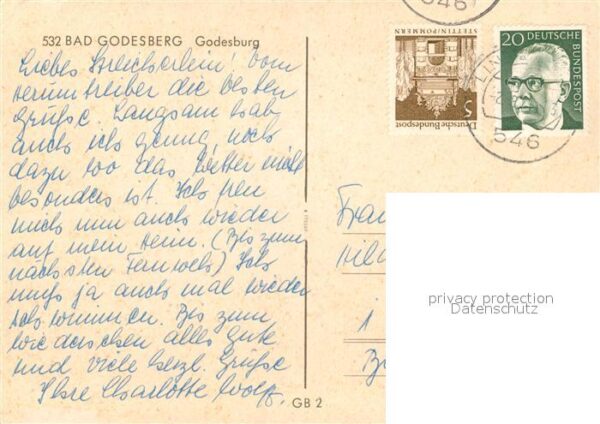 532 BAD GODESBERG Godesburg
Liebes Streichserlein! Vom
Herumtreiber die besten
Grüße. Langsam hab
auch ich genug, noch
dazu wo das Wetter nicht
besonders ist. Ich freu
mich nun auch wieder
auf mein Heim. (Bis zum
nächsten Fernweh) Ich
muß ja auch mal wieder
schwimmen. Bis zum
Wiedersehen alles gute
und viele herzl. Grüße
Ihre Charlotte Wolff.
GB 2
STETTIN/POMMERN
5
Deutsche Bundespost
20 DEUTSCHE
BUNDESPOST
546
546
Frau
Hild
1
privacy protection
Datenschutz